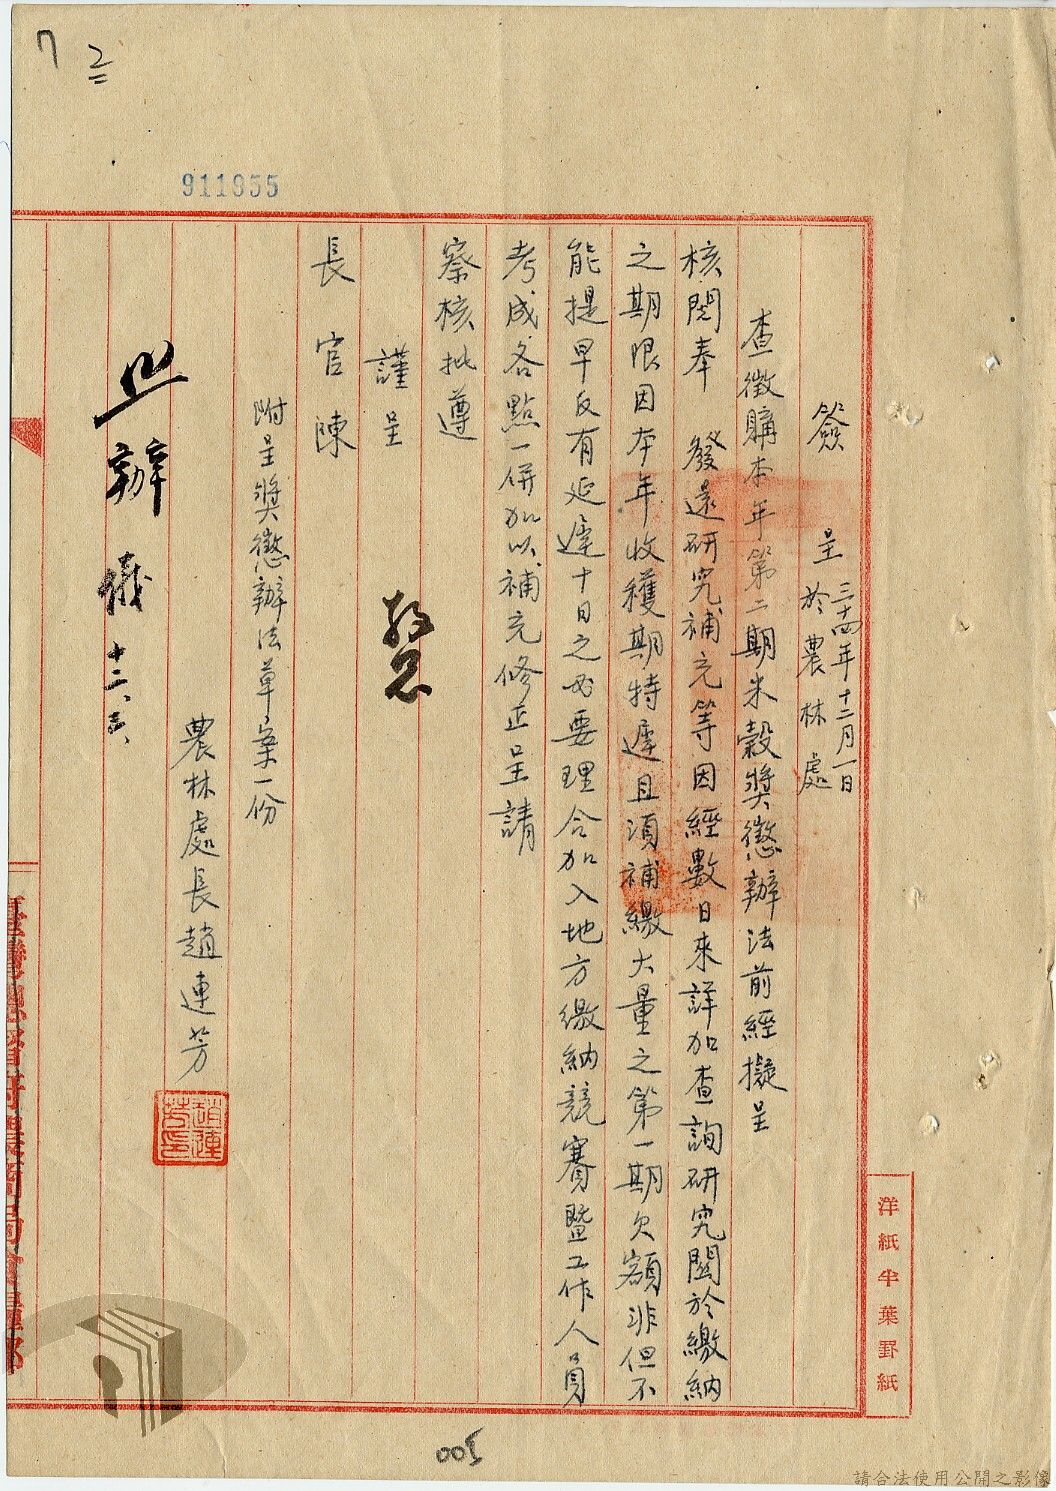 7
2
911955
簽呈 三十四年十二月一日
於農林處
查徵購本年第二期米穀獎懲辦法前經擬呈
核閱奉 發還研究補充等因經數日來詳加查詢研究關於繳納
之期限因本年收穫期特遲且須補繳大量之第一期欠額非但不
能提早反有延遲十日之必要理合加入地方繳納競賽暨工作人員
考成各點一併加以補充修正呈請
察核批遵
謹呈
長官陳
附呈獎懲辦法草案一份
農林處長趙連芳
趙連芳印
照辦 儀 十二、六、
洋紙半葉罫紙
005
請合法使用公開之影像